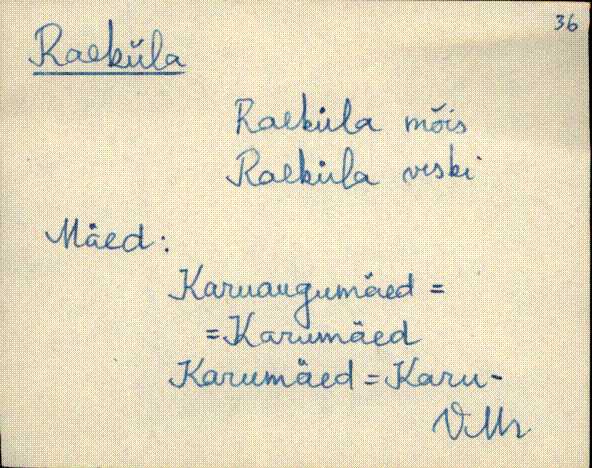 36
Raeküla
Raeküla mõis
Raeküla veski
Mäed:
Karuaugumäed =
=Karumäed
Karumäed = Karu-